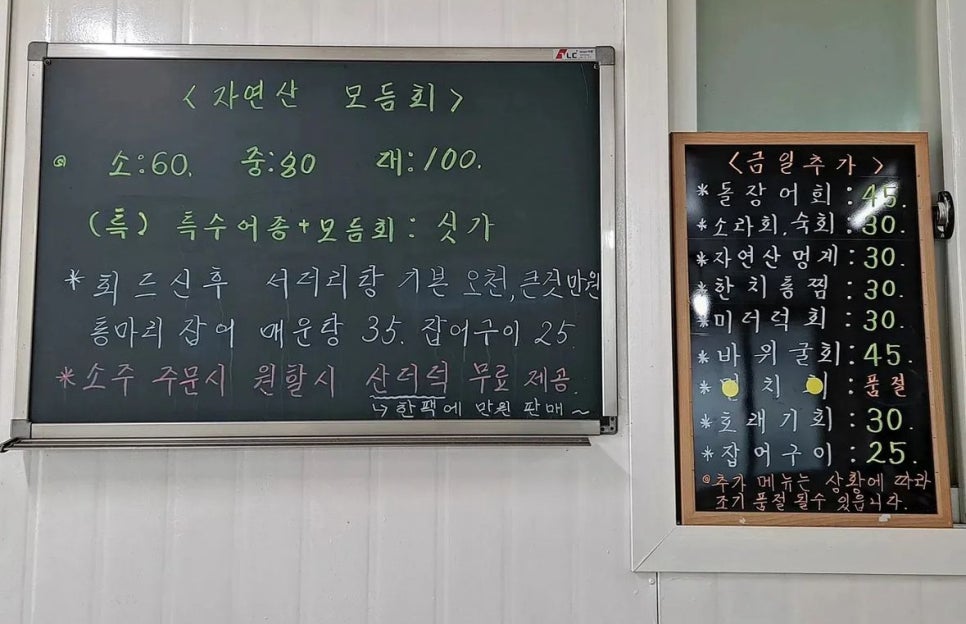 <자연산 모듬회>
소:60. 중:80 대:100.
(특) 특수어종+모듬회: 싯가
*회 드신후 서더리탕 기본 오천, 큰것 만원
통마리 잡어 매운탕 35. 잡어구이 25.
*소주 주문시 원할시 산더덕 무료 제공.
↳한팩에 만원 판매~
<금일추가>
*돌장어회:45.
*소라회.숙회:30.
*자연산멍게:30.
*한치통찜:30.
*미더덕회:30.
*바위굴회:45.
치 :품절
*호래기회:30
*잡어구이:25.
추가 메뉴는 상황에 따라
조기 품절 될수 있읍니다.